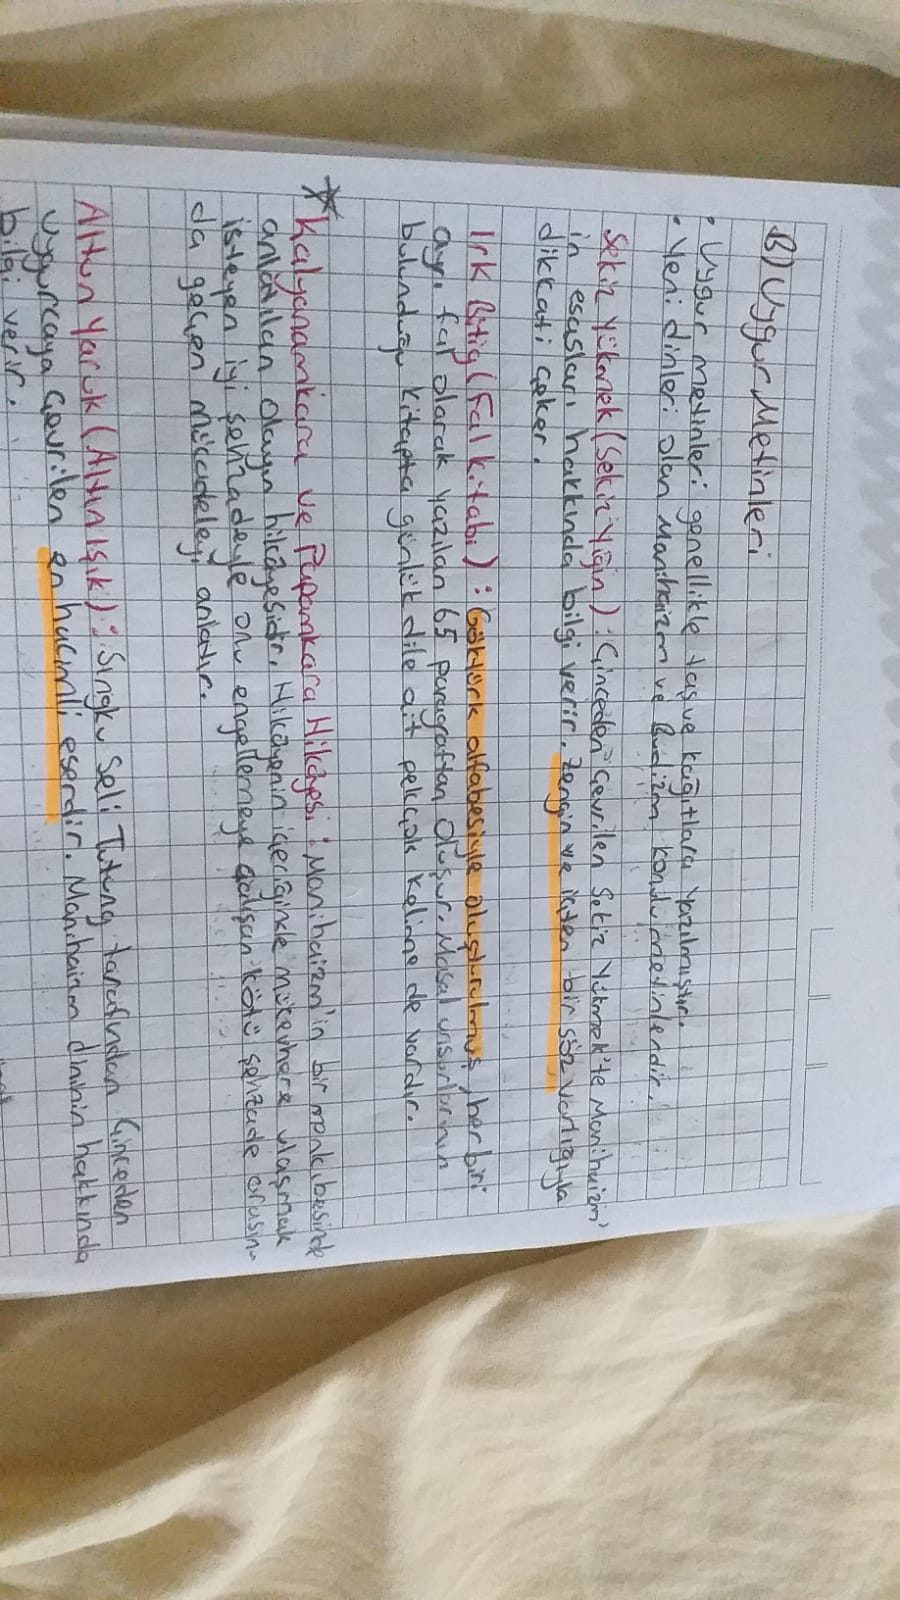 B) Uygur Metinleri
• Uygur metinleri genellikle taş ve kağıtlara yazılmıştır.
• Yeni dinleri olan Maniheizm ve Budizm konulu metinlerdir.
Sekiz Yükmek (Sekiz Yığın) : Çinceden çevrilen Sekiz Yükmek'te Maniheizm'
in esasları hakkında bilgi verir. Zengin ve içten bir söz varlığıyla
dikkati çeker.
Irk Bitig (Fal kitabı) : Göktürk alfabesiyle oluşturulmuş, her biri
ayrı fal olarak yazılan 65 paragraftan oluşur. Masal unsurlarının
bulunduğu kitapta günlük dile ait pekçok kelime de vardır.
* Kalyanamkara ve Papamkara Hikâyesi : Maniheizm'in bir menkıbesinde
anlatılan olayın hikâyesidir. Hikâyenin içeriğinde mücevhere ulaşmak
isteyen iyi şehzadeyle onu engellemeye çalışan kötü şehzade arasın-
da geçen mücadeleyi anlatır.
Altun Yaruk (Altın Işık) : Singku Seli Tutung tarafından Çinceden
Uygurcaya çevrilen en hacimli eserdir. Maniheizm dininin hakkında
bilgi verir.